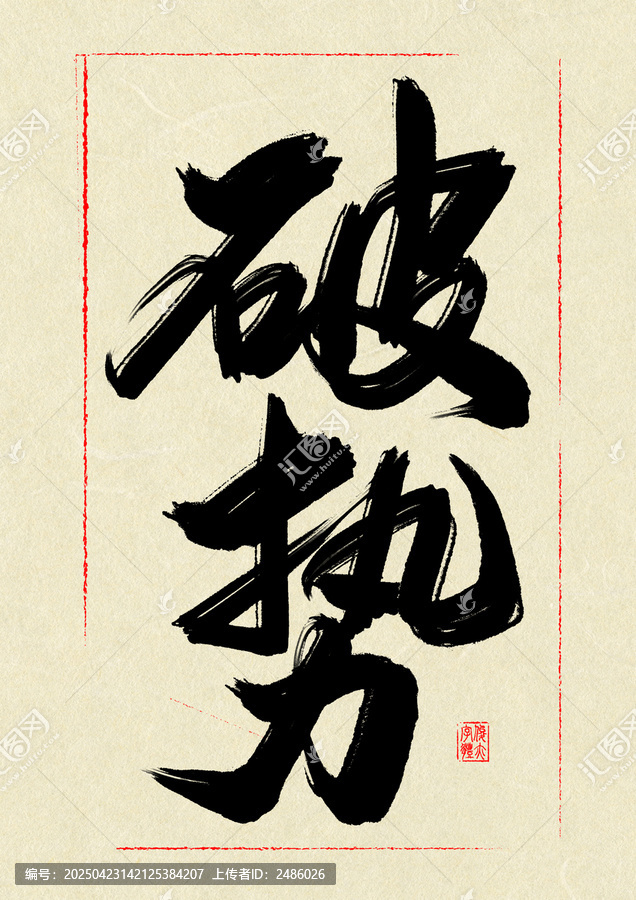 破势
汇图网
www.huitu.com
编号：20250423142125384207 上传者ID：2486026